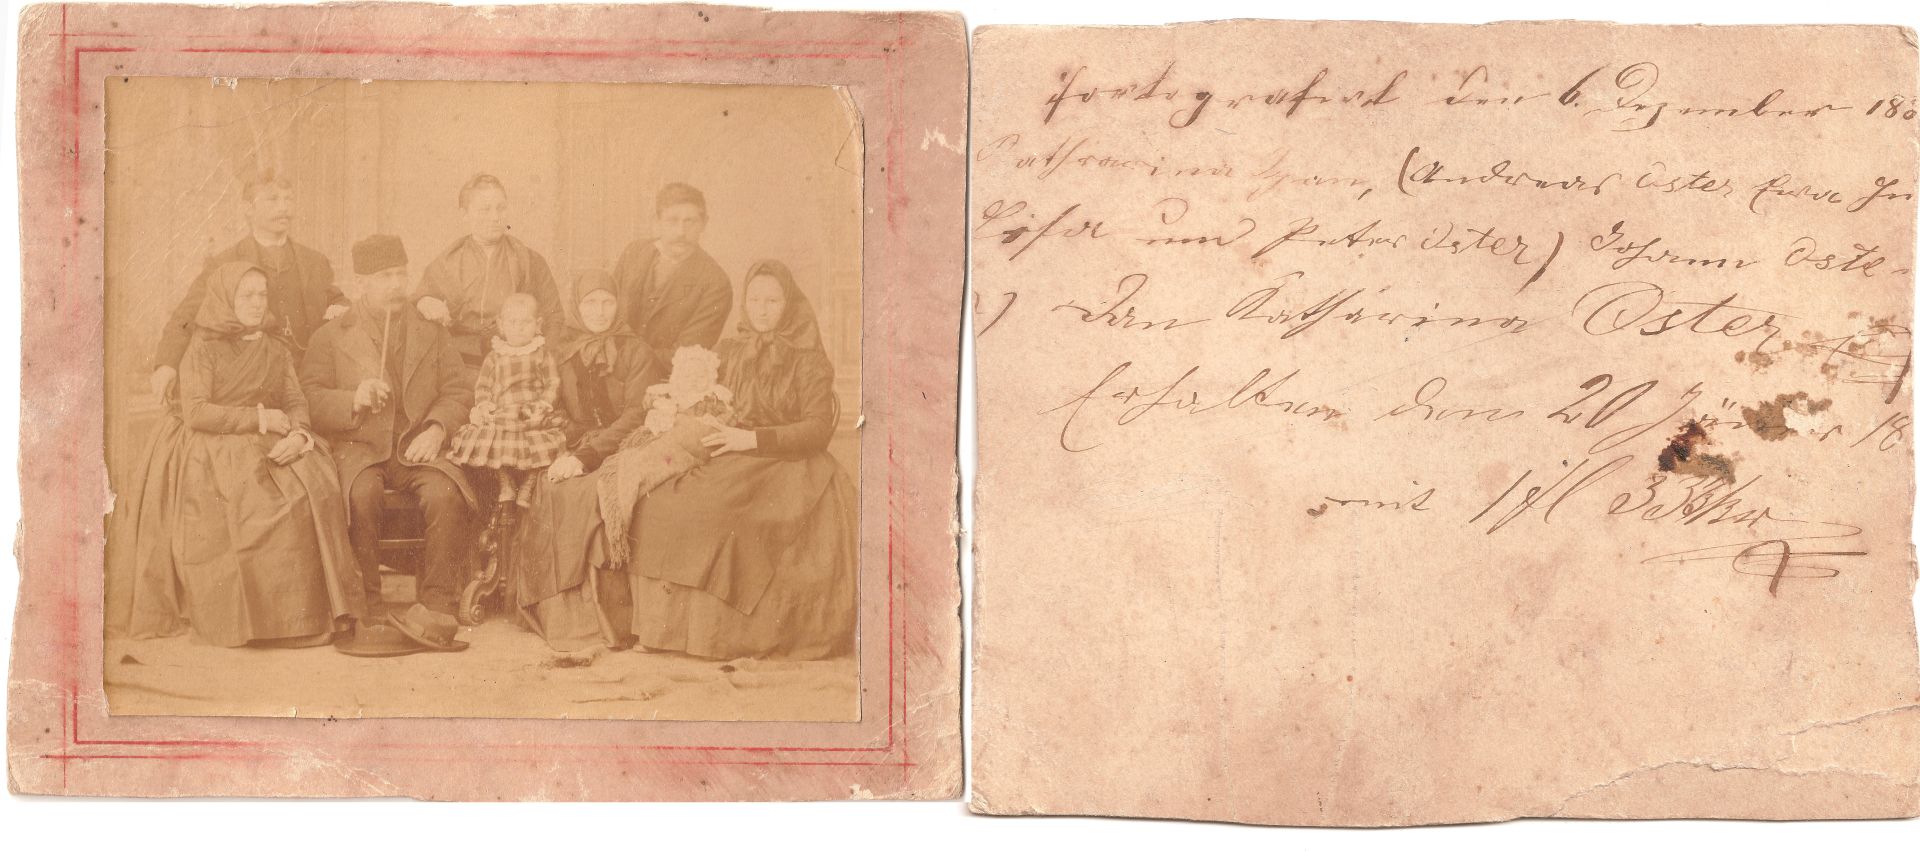 fortografirt den 6. Dezember 18
Katharina (Andreas Oster Ewa
Lisa und Peter Oster) Johann Oste-
r) dan Katharina Oster
Erhalten dem 20 Jäner 18
mit 1 fl 33 kr